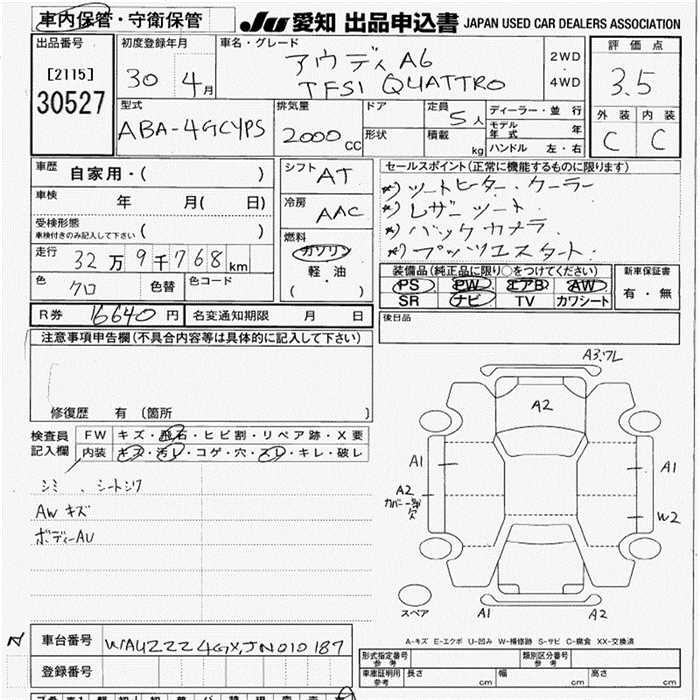 車内保管・守衛保管
JU 愛知 出品申込書 JAPAN USED CAR DEALERS ASSOCIATION
出品番号 [2115] 30527
初度登録年月 30 4月
車名・グレード アウディ A6 TFSI QUATTRO
2WD・4WD
評価点 3.5
外装 C 内装 C
型式 ABA-4GCYPS
排気量 2000 cc
ドア
形状
定員 5人
積載 kg
ディーラー・並行
モデル年式 年
ハンドル 左・右
車歴 自家用・( )
車検 年 月( 日)
受検形態 車検付きのみ記入して下さい ( )
走行 32万9千768km
色 クロ 色替 色コード
シフト AT
冷房 AAC
燃料 ガソリン 軽・油 ( )
セールスポイント(正常に機能するものに限ります)
*) シートヒーター・クーラー
*) レザーシート
*) バックカメラ
*) プッシュスタート
装備品(純正品に限り○をつけてください)
PS PW エアB AW
SR ナビ TV カワシート
新車保証書 有・無
R券 16640円 名変通知期限 月 日
後日品
注意事項申告欄(不具合内容等は具体的に記入して下さい)
修復歴 有(箇所 )
検査員記入欄
FW キズ・飛石・ヒビ割・リペア跡・X要
内装 キズ・汚レ・コゲ・穴・スレ・キレ・破レ
シミ、シートシワ
AW キズ
ボディーAU
A3,ワレ
A2
A1
A1
A2
カバー一部欠
W2
スペア
A1
A2
A-キズ E-エクボ U-凹み W-補修跡 S-サビ C-腐食 XX-交換済
車台番号 WAUZZZ4GXJN010187
登録番号
形式指定番号 参考
類別区分番号 参考
車庫証明用 参考 長さ cm 幅 cm 高さ cm